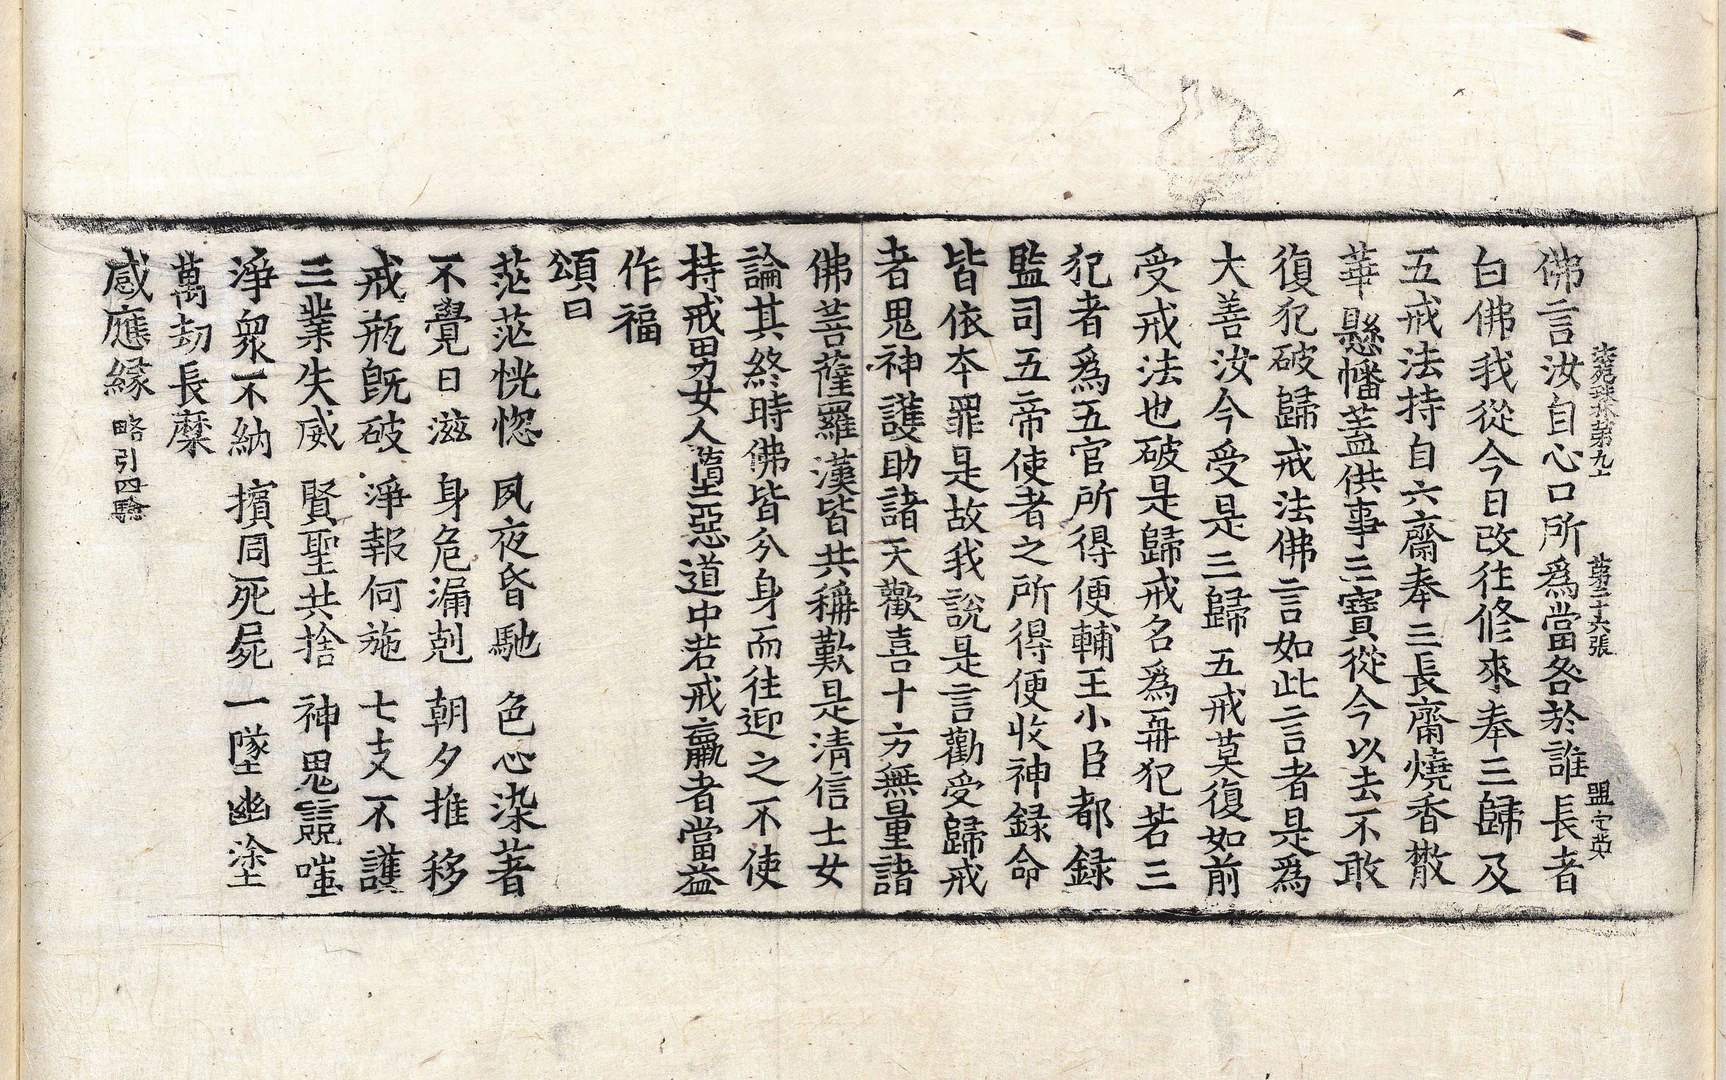 法苑珠林第九十 第二十六張
佛言汝自心口所爲當咎於誰長者
白佛我從今日改往修來奉三歸及
五戒法持自六齋奉三長齋燒香散
華懸幡蓋供事三寶從今以去不敢
復犯破歸戒法佛言如此言者是爲
大善汝今受是三歸五戒莫復如前
受戒法也破是歸戒名爲再犯若三
犯者爲五官所得便輔王小臣都録
監司五帝使者之所得便收神録命
皆依本罪是故我說是言勸受歸戒
者鬼神護助諸天歡喜十方無量諸
佛菩薩羅漢皆共稱歎是清信士女
論其終時佛皆分身而往迎之不使
持戒男女人墮惡道中若戒羸者當益
作福
頌曰
茫茫恍惚 夙夜昏馳 色心染著
不覺日滋 身危漏剋 朝夕推移
戒瓶旣破 淨報何施 七支不護
三業失威 賢聖共捨 神鬼譏嗤
淨衆不納 擯同死屍 一墜幽塗
萬劫長縻
感應緣 略引四驗